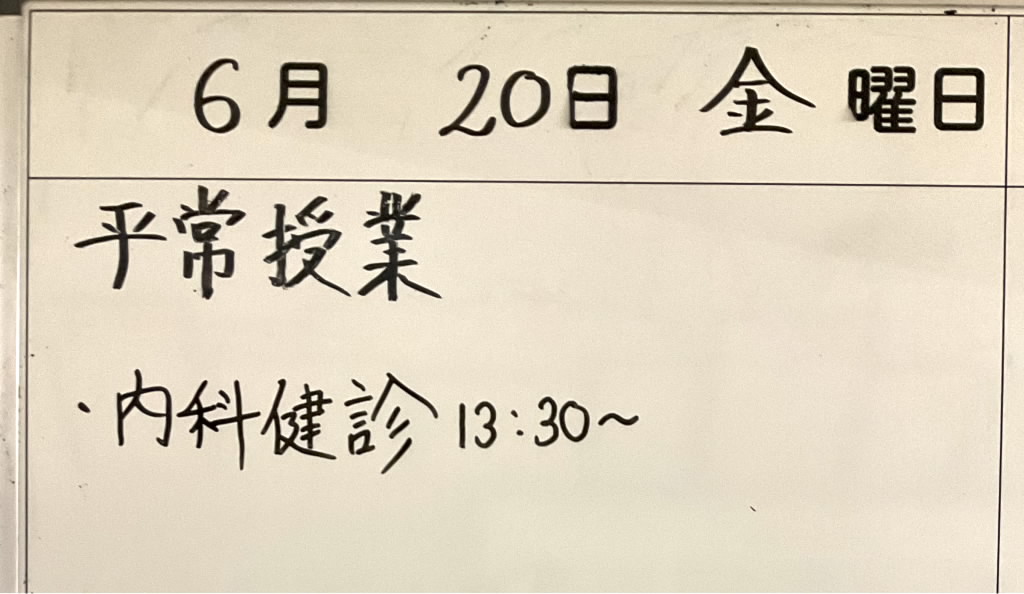 6月 20日 金曜日
平常授業
・内科健診 13:30～